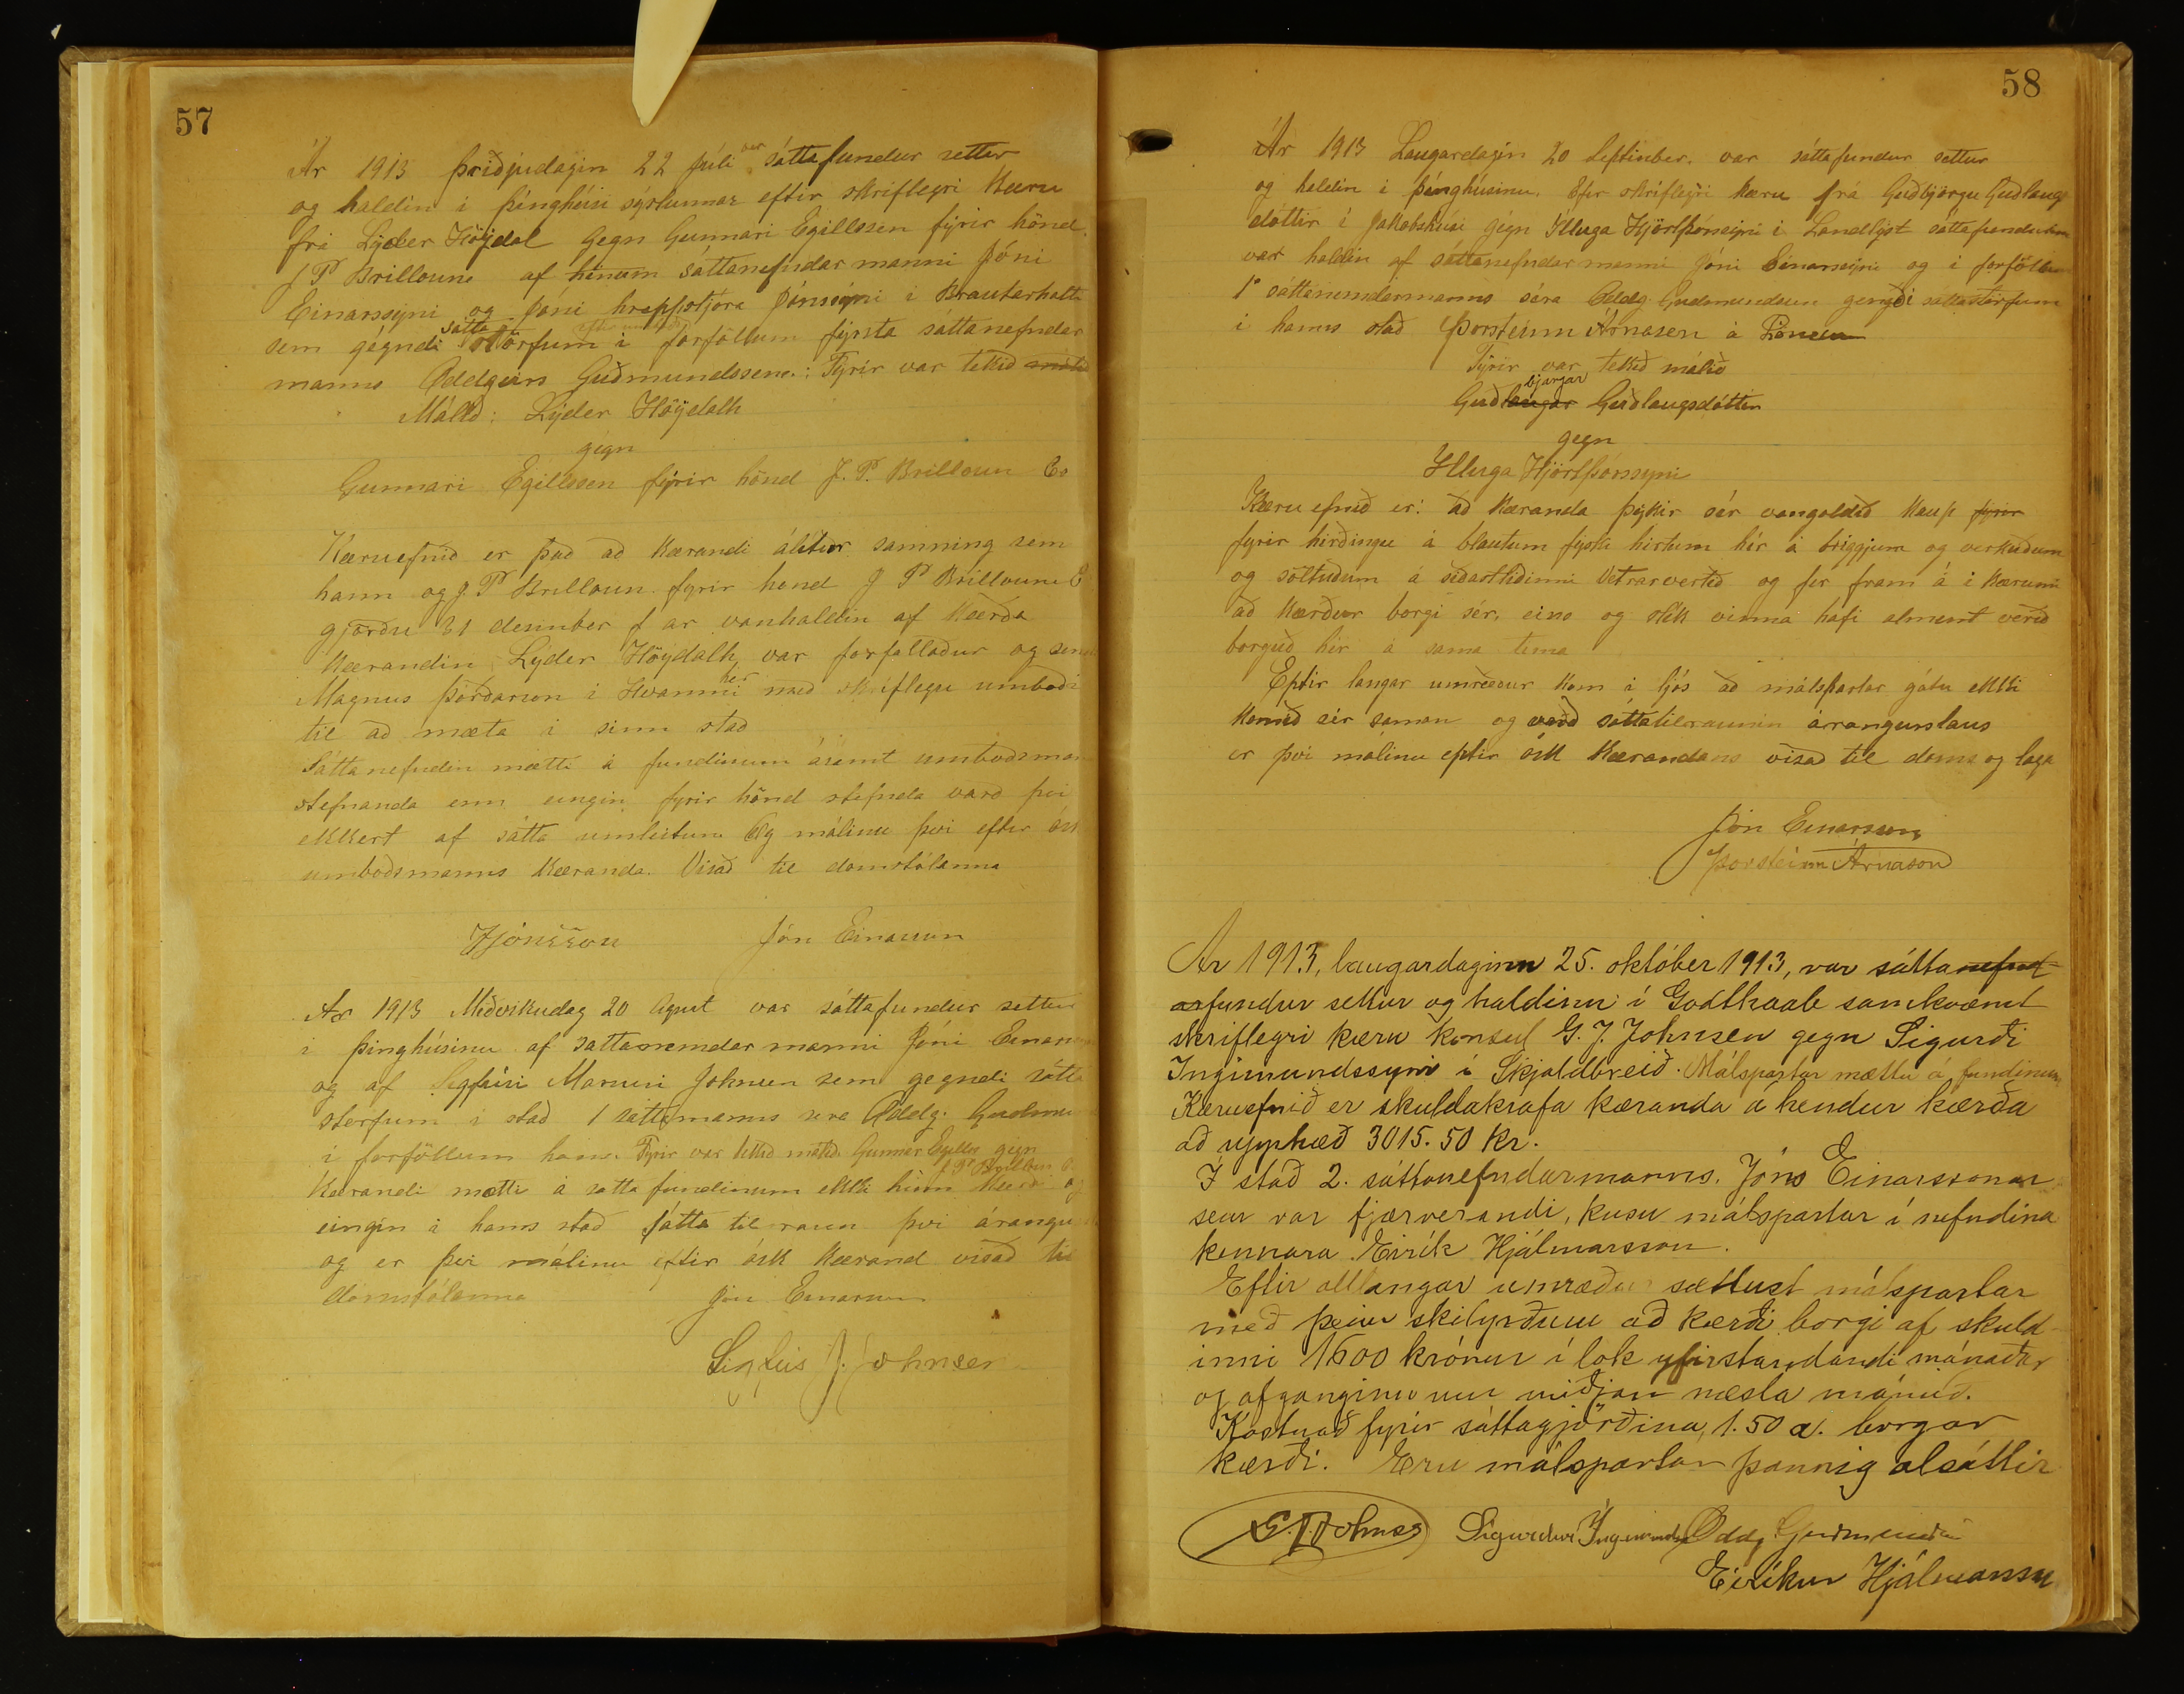 57
Ár 1913 þriðjudagin 22 Júli var sáttafundur settur
og haldin i þinghúsi sýslunnar eftir skriflegri Kæru
frá Lyder Höjdal gegn Gunnari Egillssen fýrir hönd
J P Brilloune af hénum sáttanefndarmanni Jóni
Einarssýni og Jóni hreppstjóra Jónssýni i Brautarholti
sem gégndi sátta störfum i forföllum fyrsta sáttanefndar
manns Oddgeirs Guðmundssene.: Fýrir var tekið málið
Málið: Lyder Höÿdalh
gégn
Gunnari Egillssen fýrir hönd J. P. Brilloun Co
Kæruefnið er það að Kærandi álitur samning sem
hann og J. P Brilloun fyrir hond J P Brilloune C
gjörðu 31 desember f ar vanhaldin af Kærða
Kærandin Lyder Höÿdalh, var forfallaður og sendi
Magnus þórðarson i Hvammi her með skriflegu umboði
til að mæta i sinn stað
Sáttanefndin mætti á fundinum ásamt umboðsman
stefnanda enn eingin fyrir hönd stefnda varð þvi
ekkert af sátta umleitun Og málinu þvi eftir ósk
umboðsmanns Kæranda. Visað til domstólanna
JJónsson Jón Einarsson
Ar 1913 Miðvikudag 20 Agust var sáttafundur settur
i þinghúsinu af sattanemdar manni Jóni Einars
og af Sigfúsi Marusi Johnsen sem gegndi sátta
storfum i stað 1 sáttamanns sera Oddg. Gudmu
i forföllum hans. Fýrir var tekið málið Gunnar Egilss gégn
J P Brilloun C
Kærandi mætti á satta fundinum ekki hinn Kærði og
eingin i hans stað Sátta til raun þvi árangurs
og er þvi málinu eftir ósk Kærand visað til
domstólanna Jón Einarsson
Sigfús J. Johnsen
58
Ár 1913 Laugardagin 20 Septinber. var sáttafundur settur
og haldin i þinghúsinu. Eftir skriflegri kæru frá Guðbjörgu Guðlaugs
dóttir i Jakobshúsi gégn Illuga Hjörtþórssyni i Landlýst sáttafundurin
var haldin af sáttanefndarmanni Jóni Einarssýni og i forföllum
1° sattanemdarmanns séra Oddg. Gudmundsen gengdi sáttastörfum
i hanns stað Þorsteinn Árnasen á
Fýrir var tekið málið
Guðlaugar bjargar Guðlaugsdóttir
gegn
Illuga Hjörtþórssyni
Kæru efnið er: að Kæranda þykir sér vangoldið Kaup fyrir
fyrir hirðingu á blautum fyski hirtum hér á briggjum og verkuðum
og söltuðum á siðastliðinni Vetrarvertíð og fer fram á i Kærunni
að Kærður borgi sér, eins og slik vinna hafi alment verið
borguð hér á sama tima
Eptir langar umræður kom i ljós að málspartar gátu ekki
Komið sér saman og varð sáttatilraunin árrangurslaus
er þvi málinu eptir ósk Kærandans visað til doms og laga
Jón Einarsson
Þorsteinn Árnason
Ar 1913, laugardaginn 25. október 1913, var sáttanefnd-
arfundur settur og haldinn í Godthaab samkvæmt
skriflegri kæru konsul G. J. Johnsen gegn Sigurði
Ingimundssyni í Skjaldbreið. Málspartar mættu á fundinum
Kæruefnið er skuldakrafa kæranda á hendur kærða
að upphæð 3015.50 kr.
Í stað 2. sáttanefndarmanns. Jóns Einarssonar
sem var fjærverandi, kusu málspartar í nefndina
kennara Eirík Hjálmarsson.
Eftir alllangar umræður sættust málspartar
með þeim skilyrðum að kærði borgi af skuld
inni 1600 krónur í lok yfirstandandi mánaðar
og afganginn um miðjan næsta mánuð.
Kostnað fyrir sáttagjörðina, 1.50 a. borgar
kærði. Eru málspartar þannig alsáttir
G. J. Johnsen Sigurdur Ingimundss Oddg Guðmunds
Eiríkur Hjálmarsson